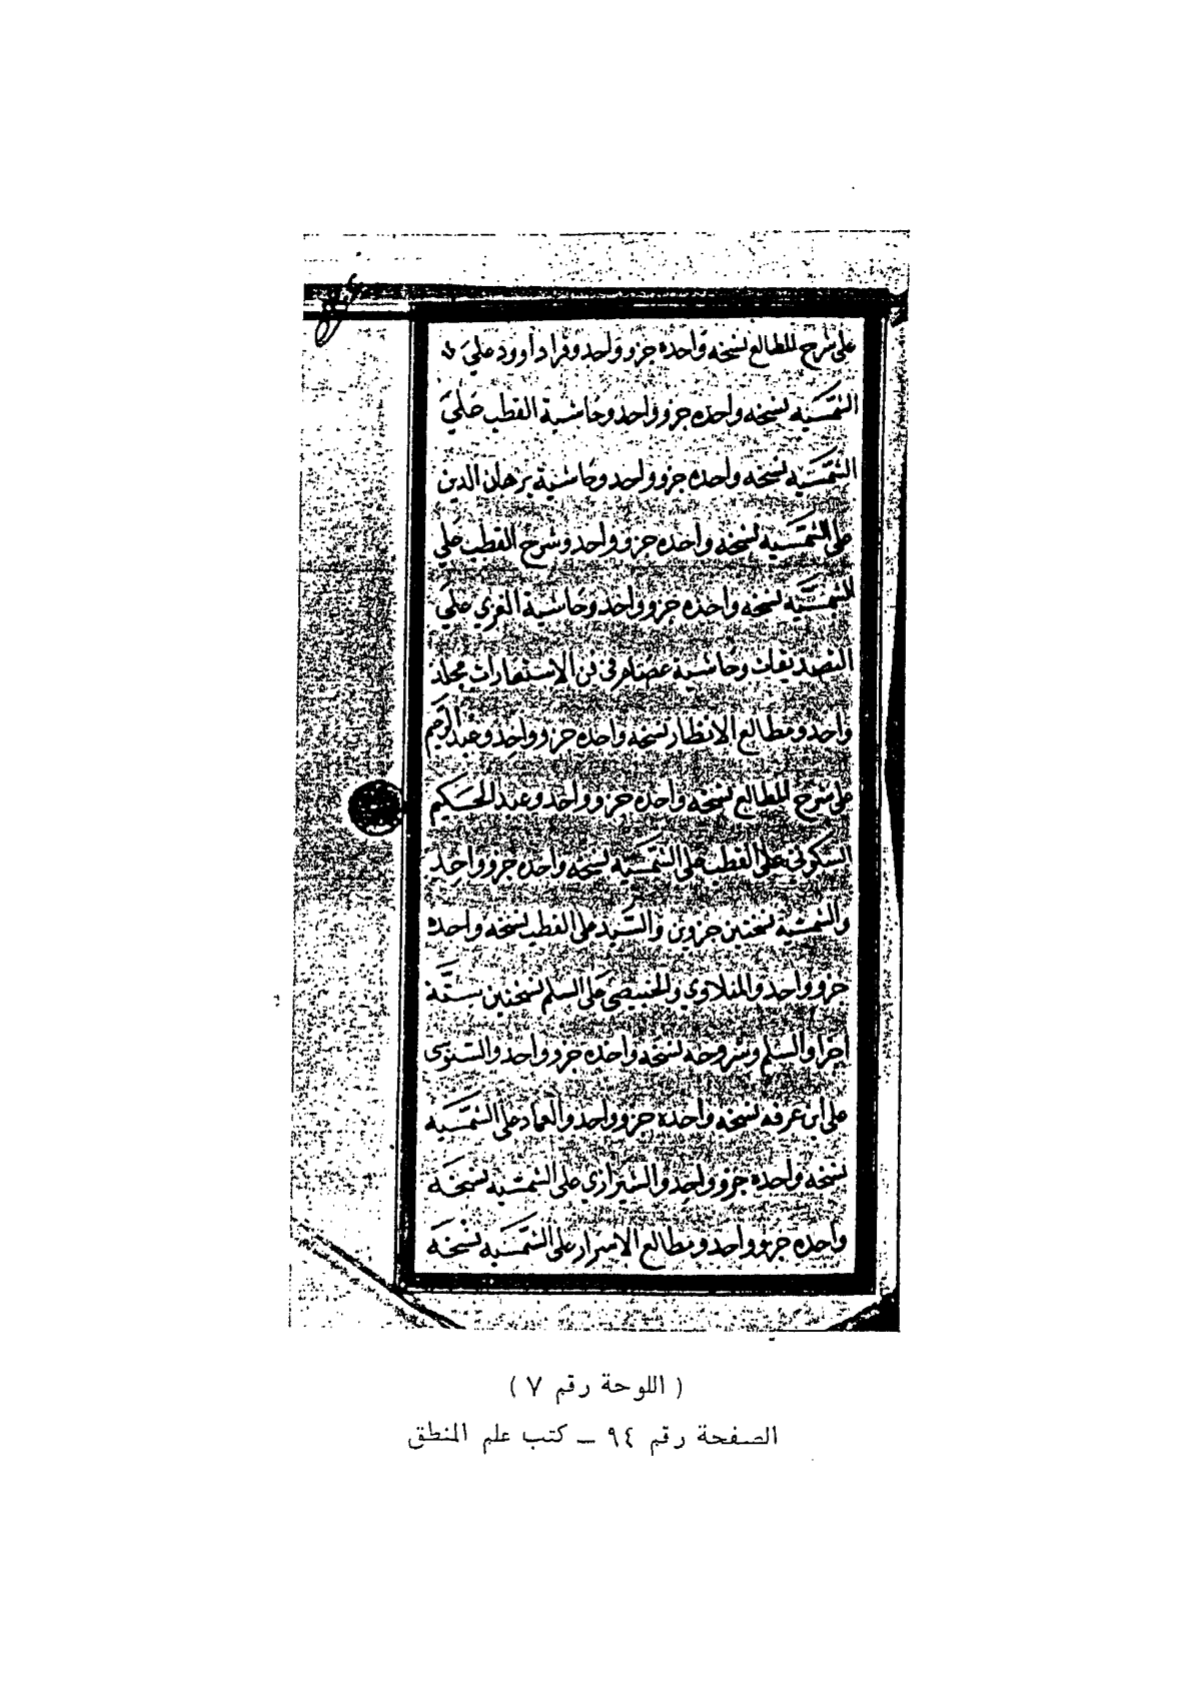 على شرح المطالع نسخه واحده جزو واحد وقرا داوود على
الشمسيه نسخه واحده جزو واحد وحاشية القطب على
الشمسيه نسخه واحده جزو واحد وحاشية برهان الدين
على الشمسيه نسخه واحده جزو واحد وشرح القطب على
الشمسيه نسخه واحده جزو واحد وحاشية على
التصديقات وحاشية عصام في فن الاستعارات مجلد
واحد ومطالع الانظار نسخه واحده جزو واحد وعبد الرحيم
على شرح المطالع نسخه واحده جزو واحد وعبد الحكيم
على القطب على الشمسيه نسخه واحده جزو واحد
والشمسية نسختين جزوين والسيد على القطب نسخه واحده
جزو واحد والملاوي والخبيصي على السلم نسختين ستة
اجزا والسلم وشروحه نسخه واحده جزو واحد والسنوسى
على ابن عرفه نسخه واحدة جزو واحد والعماد على الشمسيه
نسخه واحده جزو واحد والشيرازي على الشمسيه نسخة
واحده جزو واحد ومطالع الاسرار على الشمسيه نسخة
( اللوحة رقم ٧ )
الصفحة رقم ٩٤ ـ كتب علم المنطق